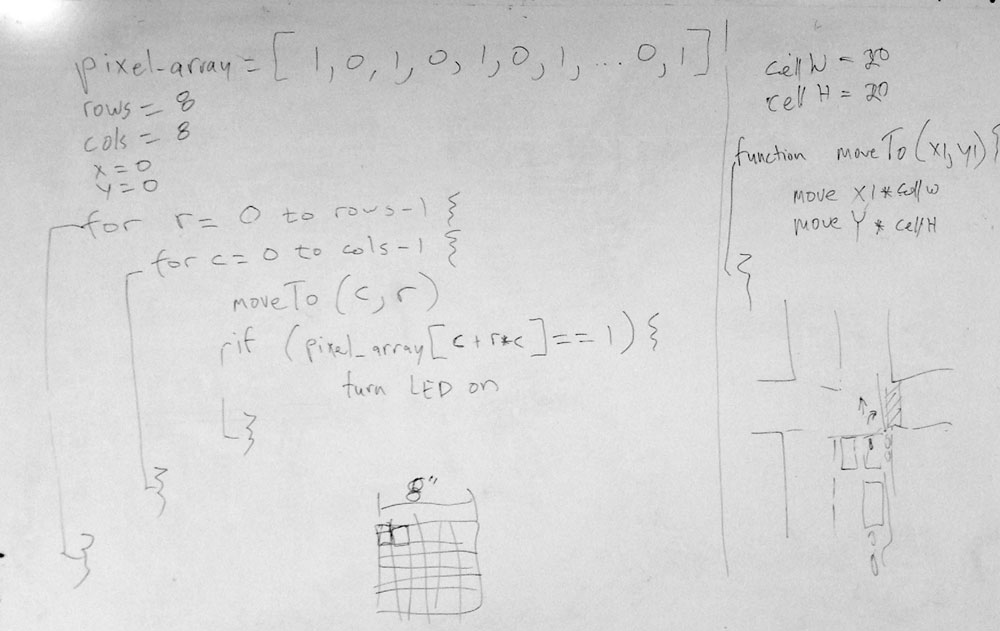 pixel_array = [ 1, 0, 1, 0, 1, 0, 1, ... 0, 1 ]
rows = 8
cols = 8
x = 0
y = 0
for r = 0 to rows-1 {
for c = 0 to cols-1 {
moveTo (c, r)
if (pixel_array[c+r*c] == 1) {
turn LED on
}
}
}
8"
cell W = 20
cell H = 20
function moveTo (x1, y1) {
move X1 * cell w
move Y * cell H
}